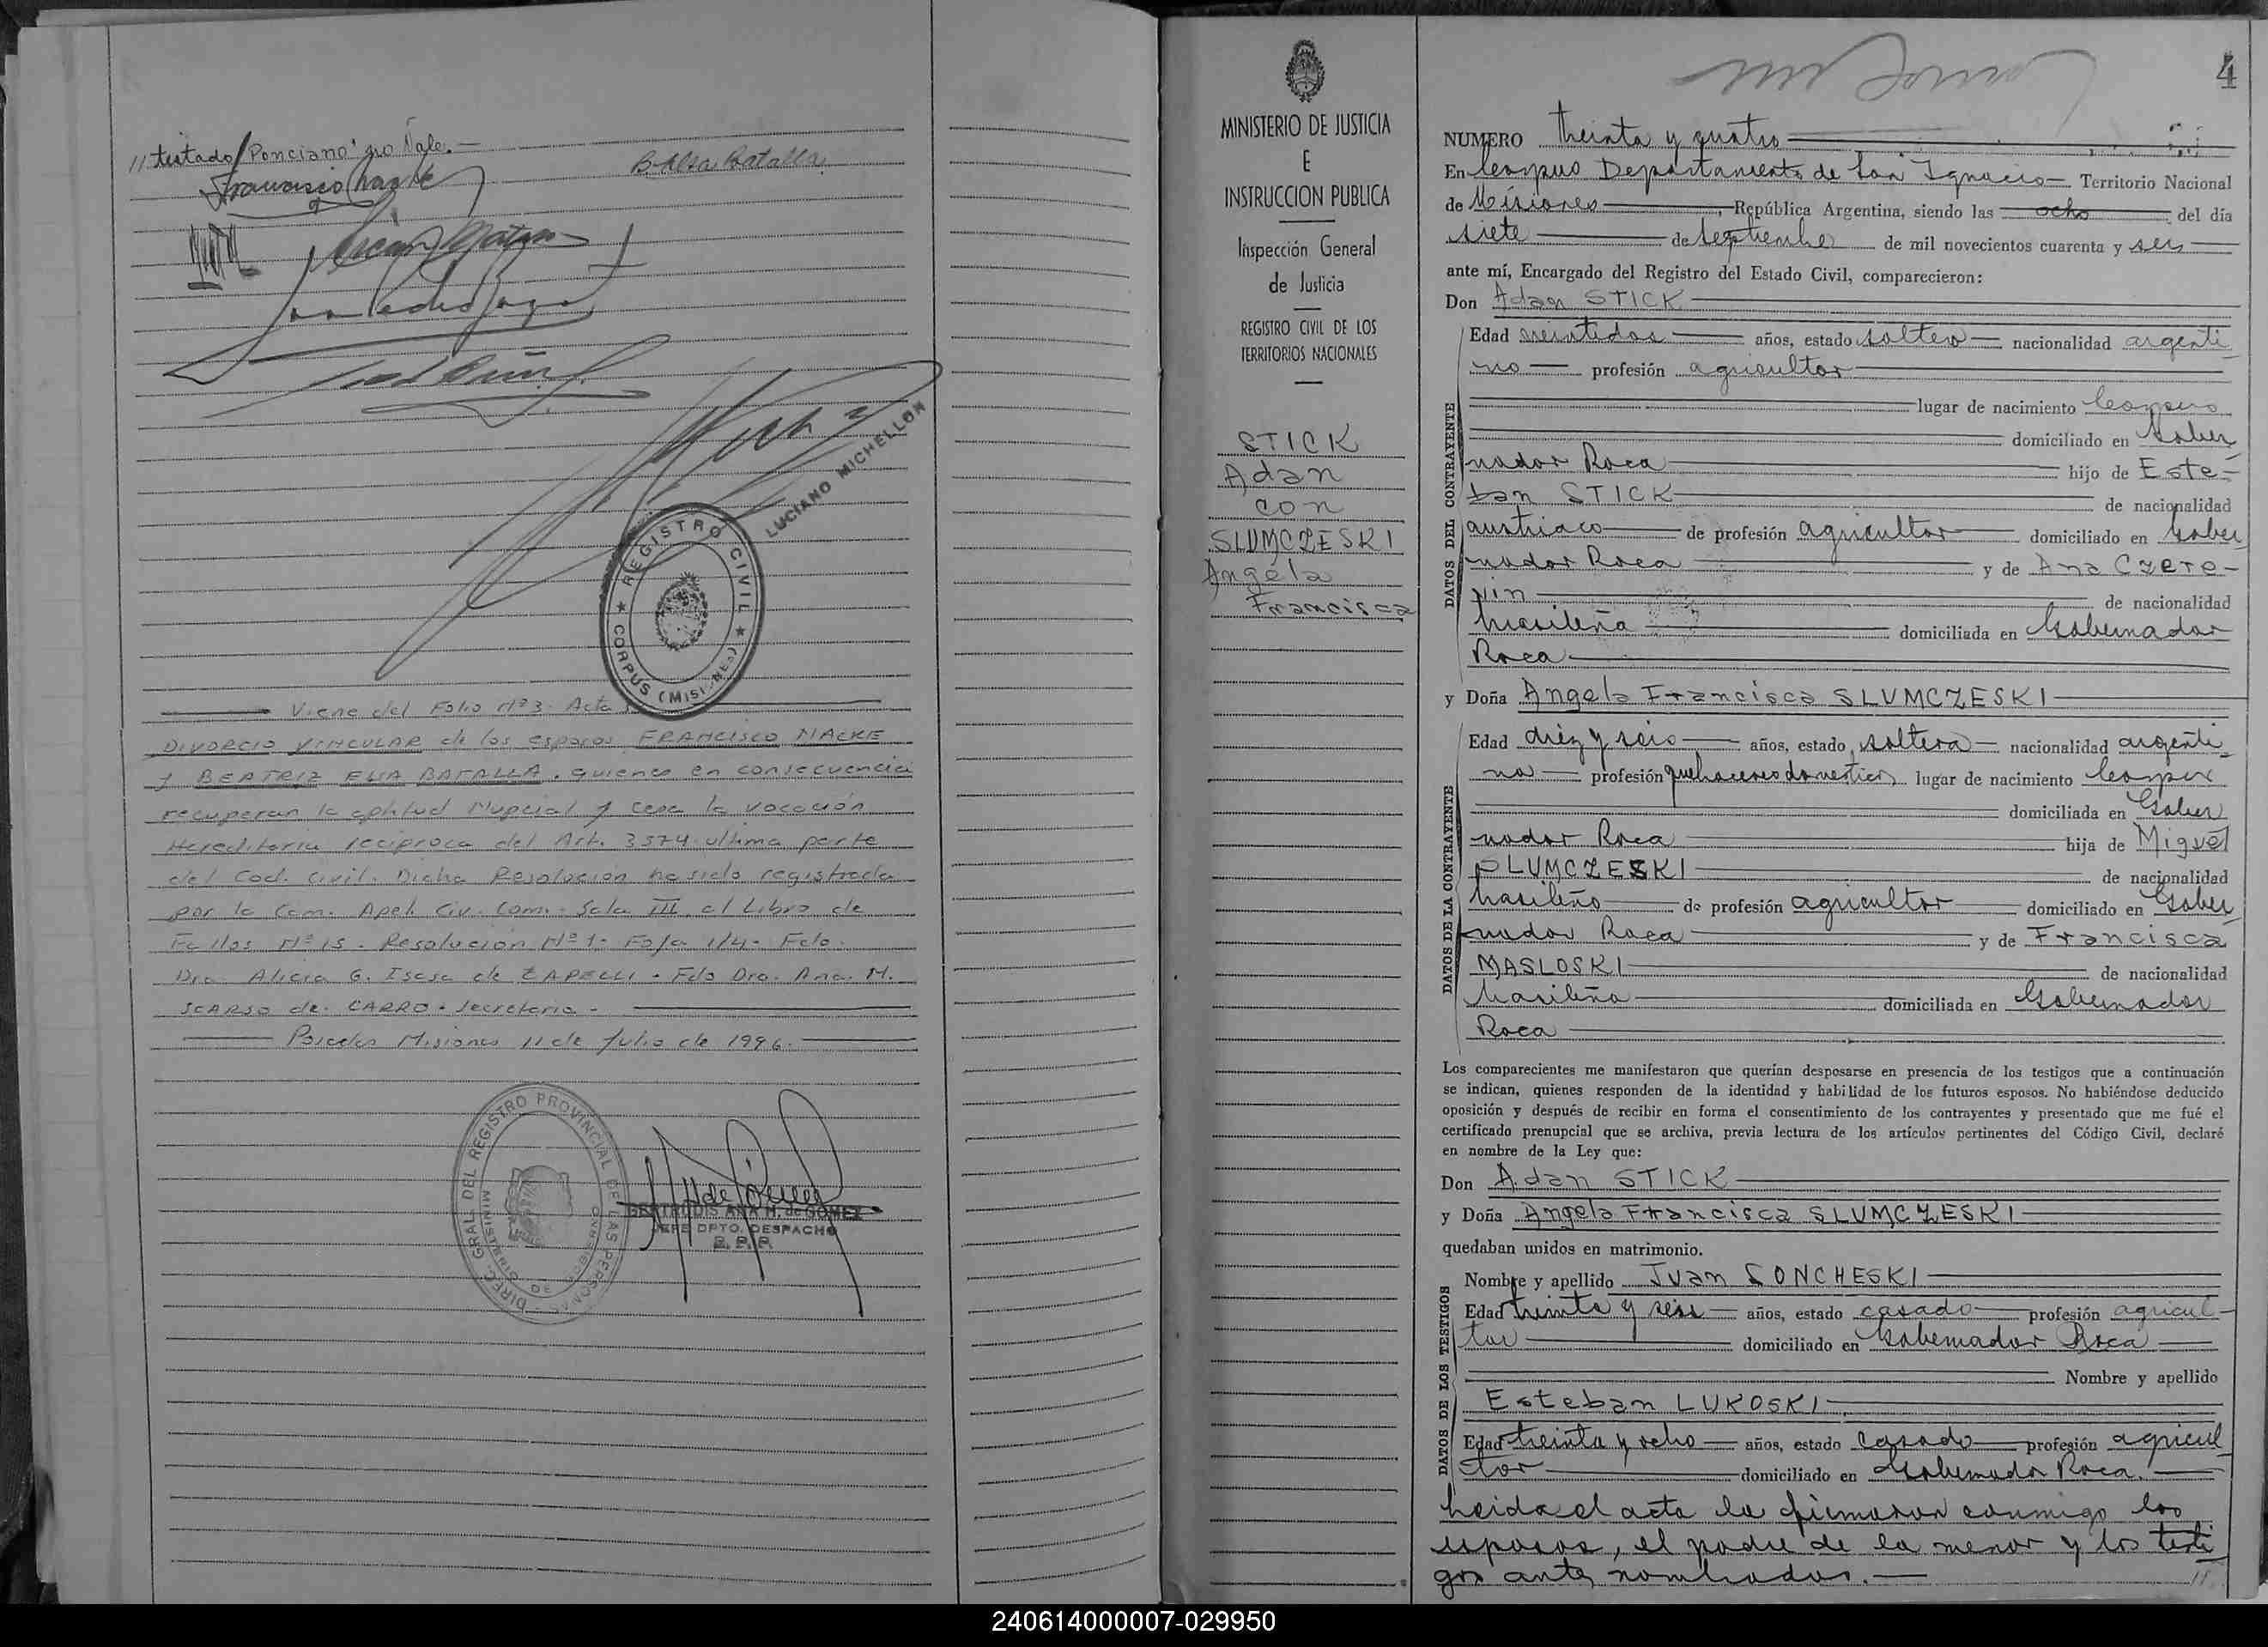 // testado "Ponciano" no Vale.—
B. Elsa Batalla
LUCIANO MICHELLON
★ REGISTRO CIVIL ★
CORPUS (MISIONES)
Viene del Folio Nº 3. Acta
DIVORCIO VINCULAR de los esposos FRANCISCO NACKE
y BEATRIZ ELSA BATALLA, quienes en consecuencia
recuperan la aptitud Nupcial y cesa la vocación
Hereditaria recíproca del Art. 3574 ultima parte
del Cod. Civil. Dicha Resolución ha sido registrada
por la Cam. Apel. Civ. Com. - Sala III, al Libro de
Fallos Nº 15 - Resolución Nº 1 - Foja 1/4 - Fdo.
Dra. Alicia G. Isasa de ZAPELLI - Fdo Dra. Ana. M.
SCARSO de CARRO - Secretaria -
Posadas Misiones 11 de Julio de 1996.
DIREC. GRAL. DEL REGISTRO PROVINCIAL DE LAS PERSONAS
GERTRUDIS ANA H. de GOMEZ
JEFE DPTO. DESPACHO
R. P. P.
MINISTERIO DE JUSTICIA
E
INSTRUCCION PUBLICA
Inspección General
de Justicia
REGISTRO CIVIL DE LOS
TERRITORIOS NACIONALES
STICK
Adan
con
SLUMCZESKI
Angela
Francisca
4
NUMERO treinta y quatro
En Corpus Departamento de San Ignacio — Territorio Nacional
de Misiones —, República Argentina, siendo las ocho — del día
siete — de Septiembre — de mil novecientos cuarenta y seis —
ante mí, Encargado del Registro del Estado Civil, comparecieron:
Don Adan STICK
DATOS DEL CONTRAYENTE
Edad veintidos — años, estado soltero — nacionalidad argenti
no — profesión agricultor
lugar de nacimiento Corpus
domiciliado en Gober
nador Roca — hijo de Este-
ban STICK — de nacionalidad
austriaco — de profesión agricultor — domiciliado en Gober
nador Roca — y de Ana Czere-
vin — de nacionalidad
brasileña — domiciliada en Gobernador
Roca —
y Doña Angela Francisca SLUMCZESKI —
DATOS DE LA CONTRAYENTE
Edad diez y seis — años, estado soltera — nacionalidad argenti
na — profesión quehaceres domestico lugar de nacimiento Corpus
domiciliada en Gober
nador Roca — hija de Miguel
SLUMCZESKI — de nacionalidad
brasileño — de profesión agricultor — domiciliado en Gober
nador Roca — y de Francisca
MASLOSKI — de nacionalidad
brasileña — domiciliada en Gobernador
Roca —
Los comparecientes me manifestaron que querían desposarse en presencia de los testigos que a continuación
se indican, quienes responden de la identidad y habilidad de los futuros esposos. No habiéndose deducido
oposición y después de recibir en forma el consentimiento de los contrayentes y presentado que me fué el
certificado prenupcial que se archiva, previa lectura de los artículos pertinentes del Código Civil, declaré
en nombre de la Ley que:
Don Adan STICK —
y Doña Angela Francisca SLUMCZESKI —
quedaban unidos en matrimonio.
DATOS DE LOS TESTIGOS
Nombre y apellido Juan SONCHESKI —
Edad treinta y seis — años, estado casado — profesión agricul-
tor — domiciliado en Gobernador Roca —
Nombre y apellido
Esteban LUKOSKI —
Edad treinta y ocho — años, estado casado — profesión agricul
tor — domiciliado en Gobernador Roca. —
Leida el acta la firmaron conmigo los
esposos, el padre de la menor y los testi
gos antes nombrados. — //
240614000007-029950